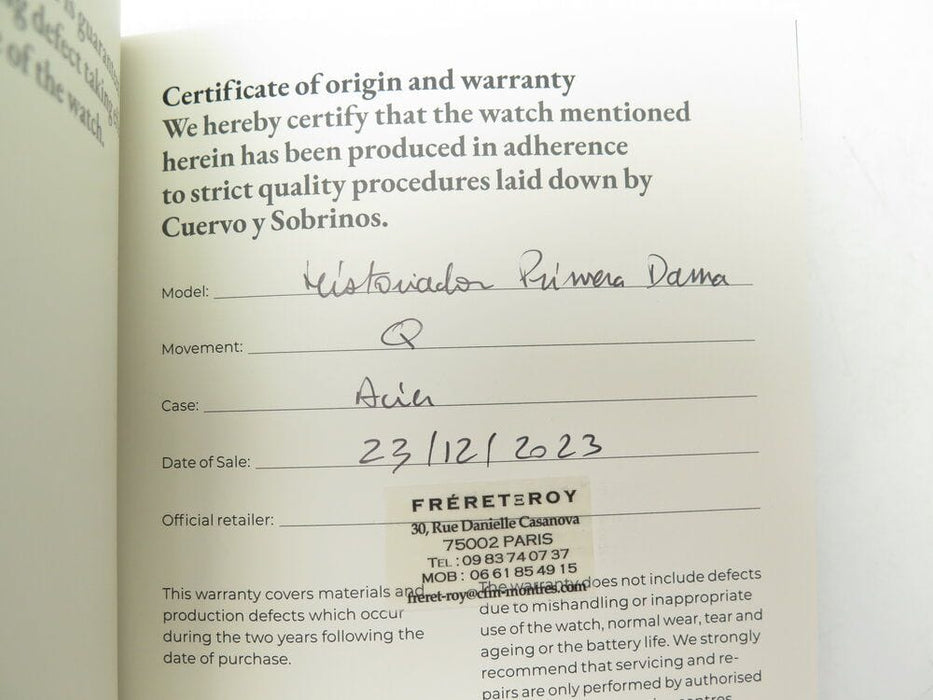 is guarantee
defect taking
of the watch.
Certificate of origin and warranty
We hereby certify that the watch mentioned
herein has been produced in adherence
to strict quality procedures laid down by
Cuervo y Sobrinos.
Model: Historiador Primera Dama
Movement: Q
Case: Acier
Date of Sale: 23/12/2023
Official retailer:
FRÉRET ROY
30, Rue Danielle Casanova
75002 PARIS
TEL : 09 83 74 07 37
MOB : 06 61 85 49 15
freret-roy@cfm-montres.com
This warranty covers materials and
production defects which occur
during the two years following the
date of purchase.
The warranty does not include defects
due to mishandling or inappropriate
use of the watch, normal wear, tear and
ageing or the battery life. We strongly
recommend that servicing and re-
pairs are only performed by authorised